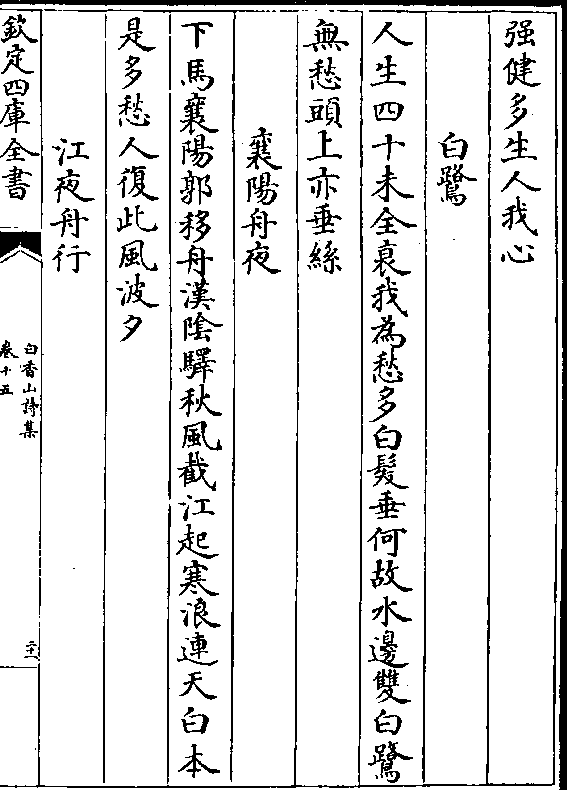 强健多生人我心
白鷺
人生四十未全衰我為愁多白髮垂何故水邊雙白鷺
無愁頭上亦垂絲
襄陽舟夜
下馬襄陽郭移舟漢陰驛秋風截江起寒浪連天白本
是多愁人復此風波夕
江夜舟行
欽定四庫全書
白香山詩集
卷十五